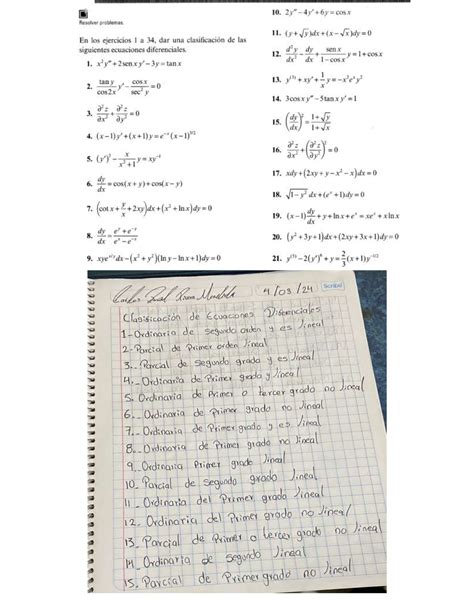 Resolver problemas.
En los ejercicios 1 a 34, dar una clasificación de las
siguientes ecuaciones diferenciales.
1. x²y″+2sen x y′−3y=tan x
2. tan y/cos2x y′ − cos x/sec² y = 0
3. ∂²z/∂x² + ∂²z/∂y² = 0
4. (x−1)y′+(x+1)y=e⁻ˣ(x−1)^3/2
5. (y′)² − x/(x²+1) y = xy⁻⁴
6. dy/dx = cos(x+y)+cos(x−y)
7. (cot x + y/x + 2xy)dx+(x²+ln x)dy=0
8. dy/dx = (eʸ+e⁻ʸ)/(eˣ−e⁻ˣ)
9. xye^x/y dx−(x²+y²)(ln y−ln x+1)dy=0
10. 2y″−4y′+6y=cos x
11. (y+√y)dx+(x−√x)dy=0
12. d²y/dx² − dy/dx + sen x/(1−cos x) y=1+cos x
13. y⁽³⁾+xy′+ 1/x y=−x²eˣy²
14. 3cos x y″−5tan x y′=1
15. (dy/dx)² = (1+√y)/(1+√x)
16. ∂²z/∂x² + (∂²z/∂y²)² = 0
17. xdy+(2xy+y−x²−x)dx=0
18. √1−y² dx+(eˣ+1)dy=0
19. (x−1)dy/dx+y+ln x+eˣ=xeˣ+x ln x
20. (y²+3y+1)dx+(2xy+3x+1)dy=0
21. y⁽⁵⁾−2(y′)⁶+y= 2/3 (x+1)y^−1/2
4/03/24
Scribd
Clasificación de Ecuaciones Diferenciales
1-Ordinaria de segundo orden y es lineal
2-Parcial de Primer orden lineal
3.- Parcial de segundo grado y es lineal
4.- Ordinaria de Primer grado y lineal
5. Ordinaria de Primer o tercer grado no lineal
6.- Ordinaria de Primer grado no lineal
7.- Ordinaria de Primer grado y es lineal
8.- Ordinaria de Primer grado no lineal
9.- Ordinaria Primer grado lineal
10.- Parcial de segundo grado lineal
11.- Ordinaria del Primer grado lineal
12.- Ordinaria del Primer grado no lineal
13.- Parcial de Primer o tercer grado no lineal
14.- Ordinaria de segundo lineal
15. Parcial de Primer grado no lineal